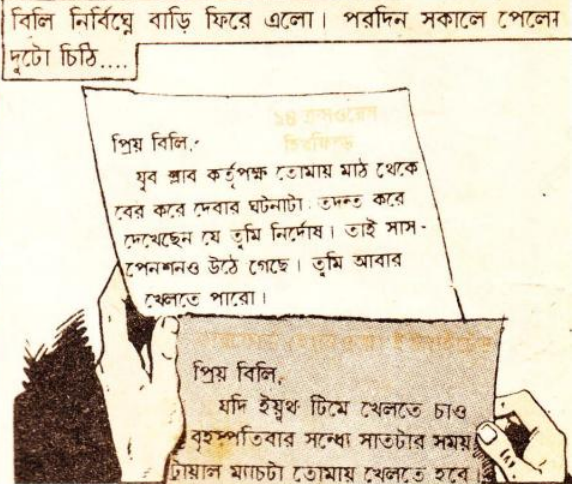 বিলি নির্বিঘ্নে বাড়ি ফিরে এলো। পরদিন সকালে পেলেন
দুটো চিঠি....
প্রিয় বিলি,
যুব ক্লাব কর্তৃপক্ষ তোমায় মাঠ থেকে
বের করে দেবার ঘটনাটা তদন্ত করে
দেখেছেন যে তুমি নির্দোষ। তাই সাস-
পেনশনও উঠে গেছে। তুমি আবার
খেলতে পারো।
প্রিয় বিলি,
যদি ইয়ুথ টিমে খেলতে চাও
বৃহস্পতিবার সন্ধ্যে সাতটার সময়
ট্রায়াল ম্যাচটা তোমায় খেলতে হবে।